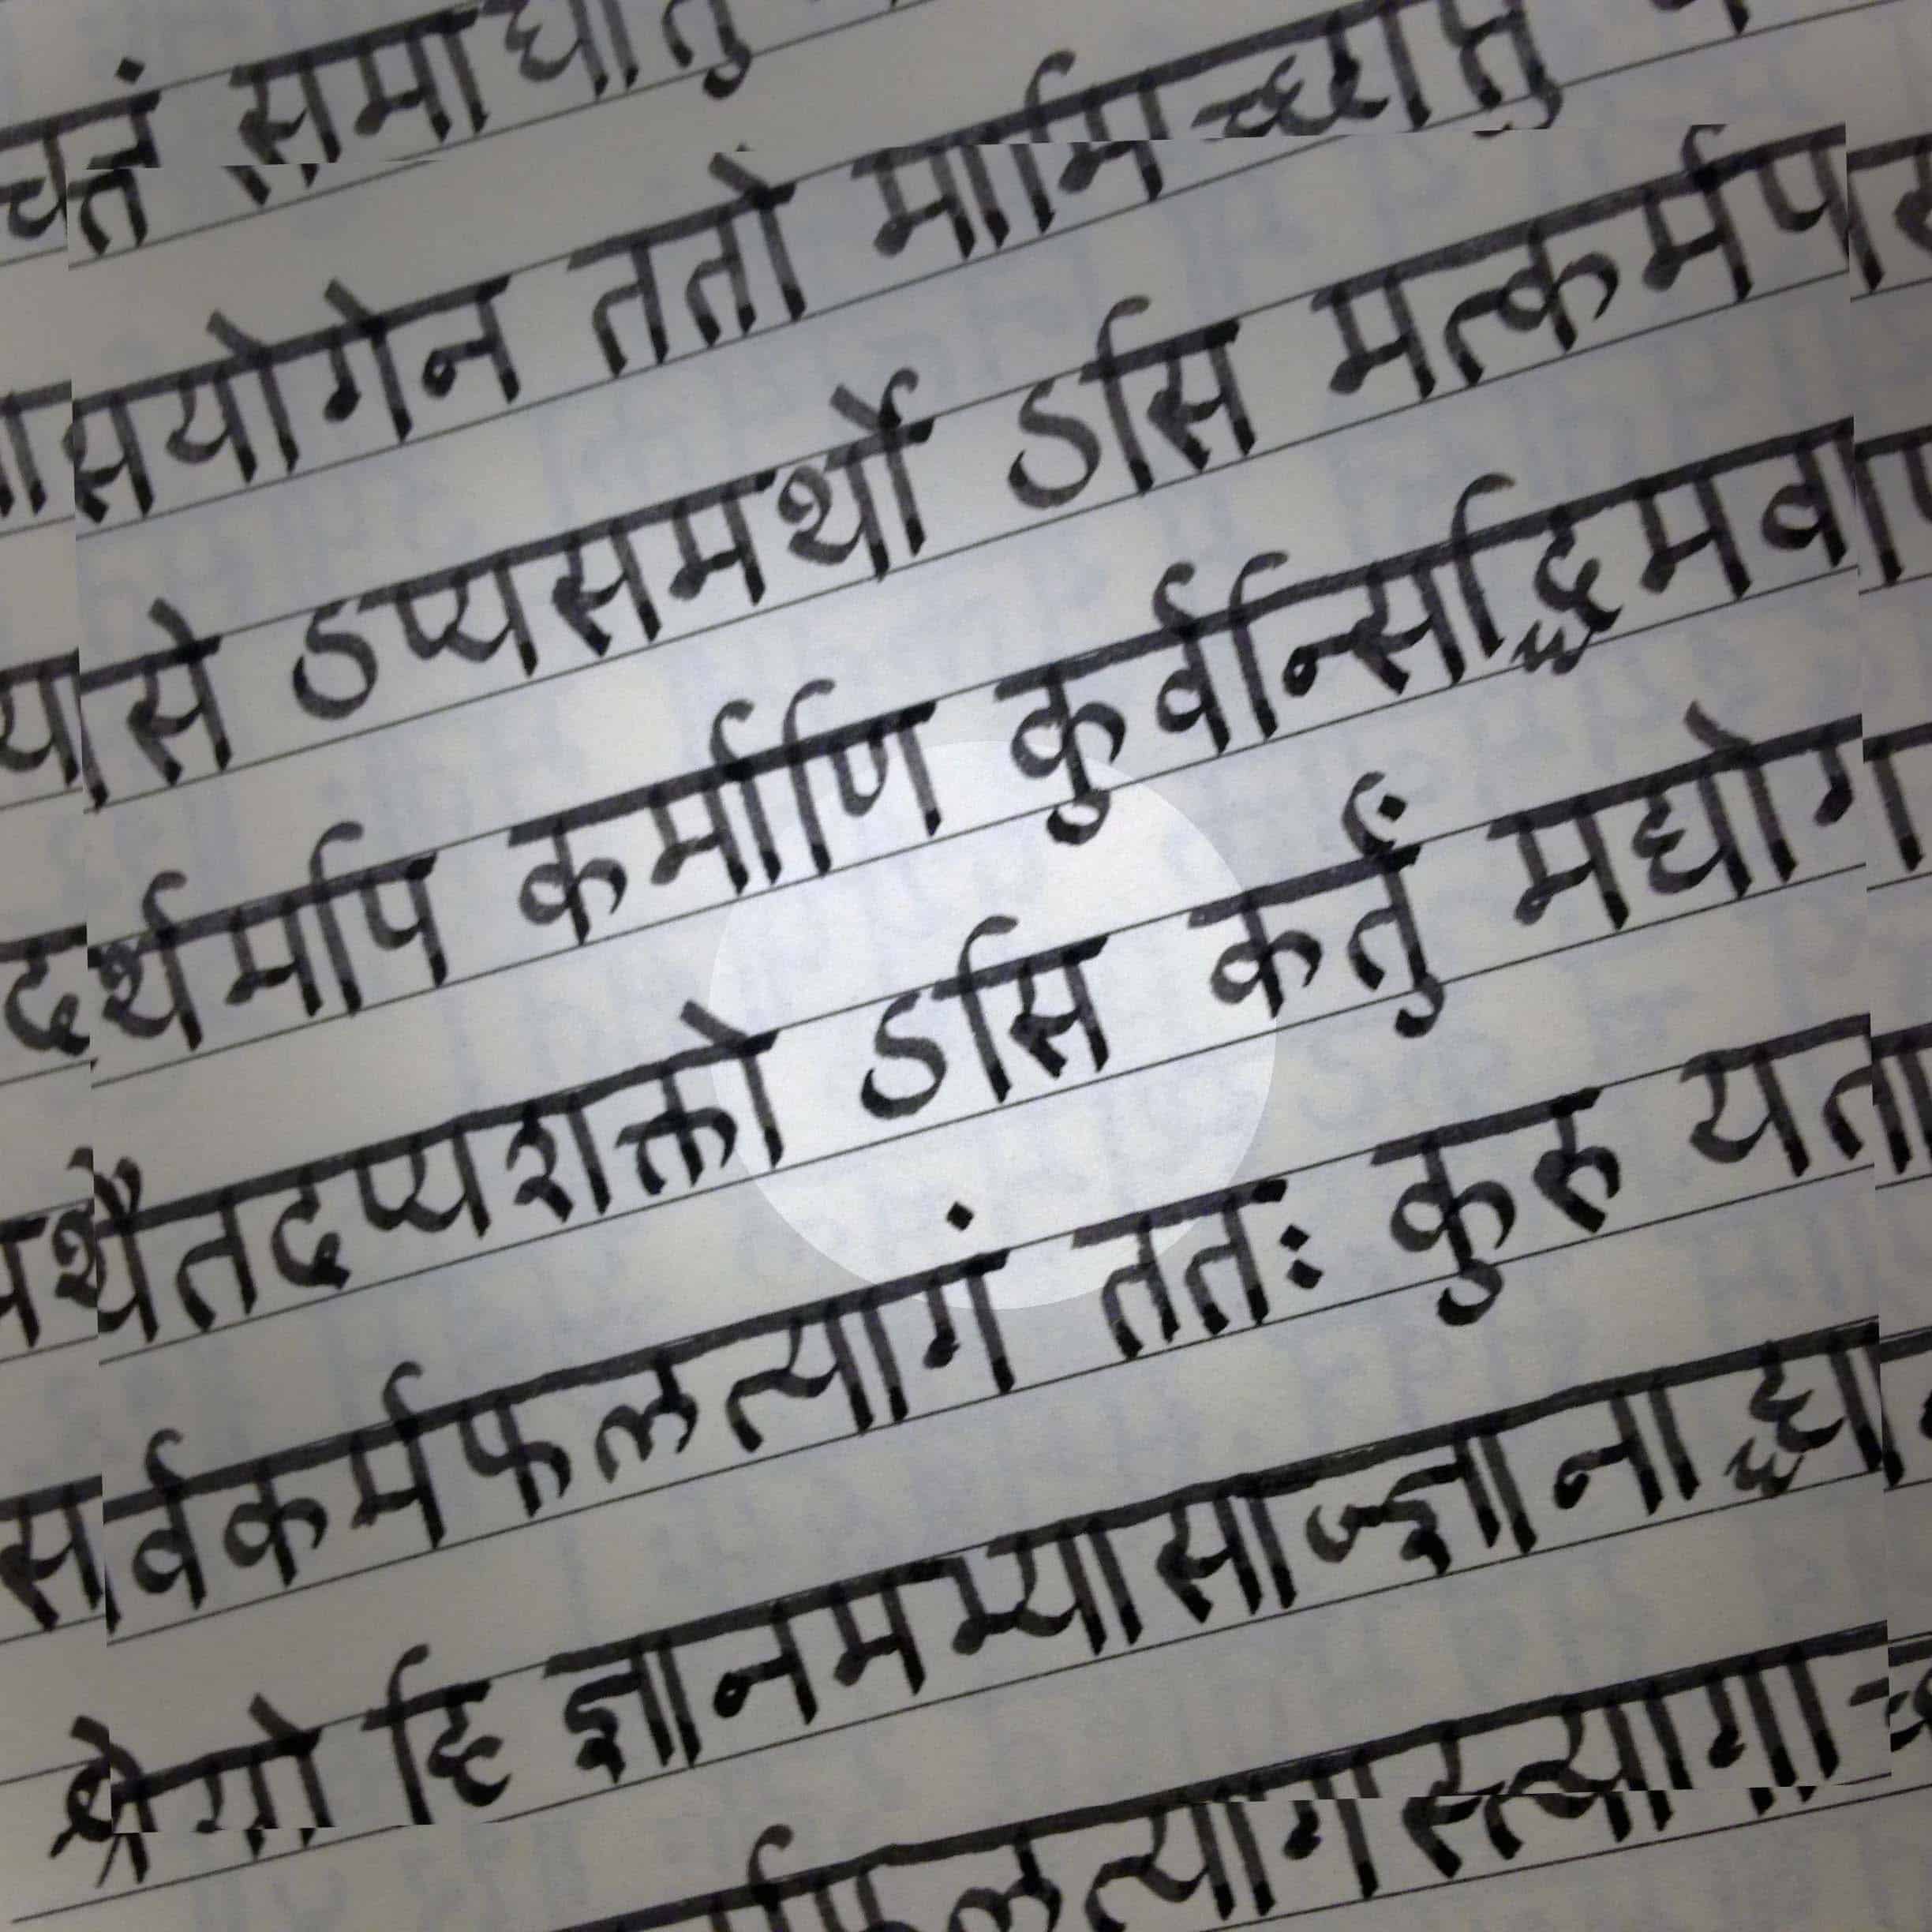 चित्तं समाधातुं
भ्यासयोगेन ततो मामिच्छाप्तुं
भ्यासे ऽप्यसमर्थो ऽसि मत्कर्मपर
दर्थमपि कर्माणि कुर्वन्सिद्धिमवाप
अथैतदप्यशक्तो ऽसि कर्तुं मद्योग
सर्वकर्मफलत्यागं ततः कुरु यता
श्रेयो हि ज्ञानमभ्यासाज्ज्ञानाद्ध्या
र्मफलत्यागस्त्यागाच्छ